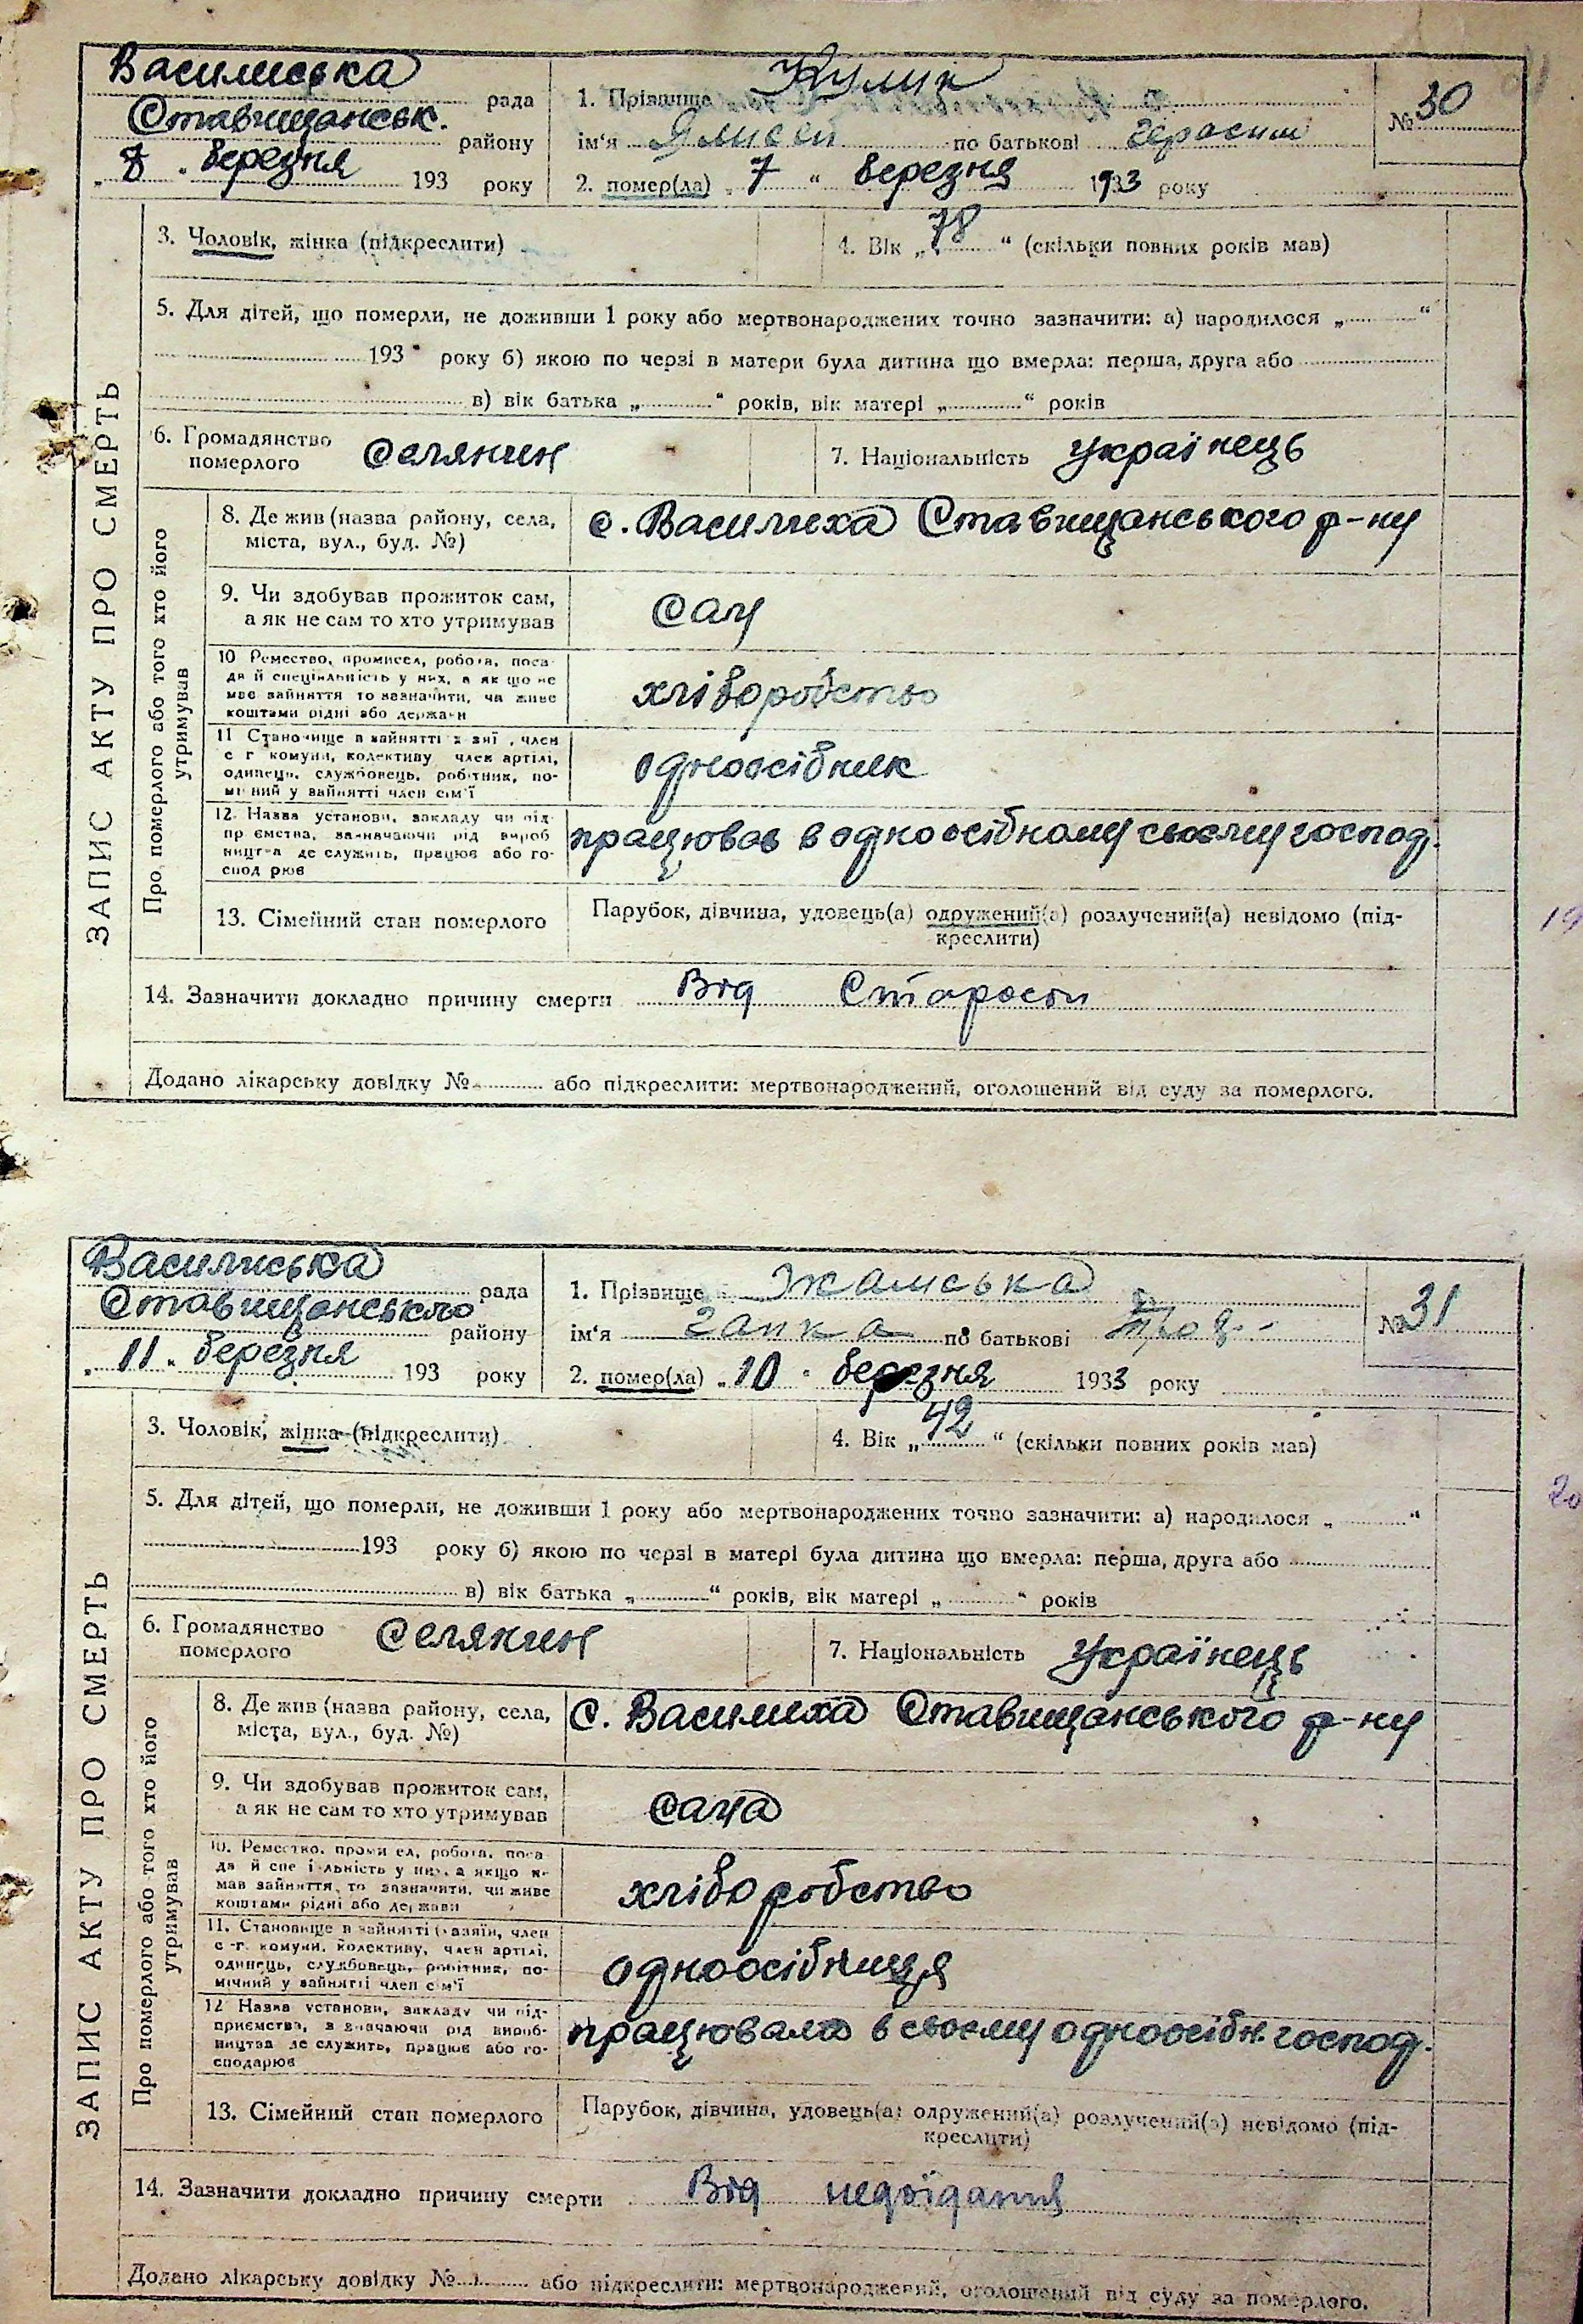 Василиська рада
Ставищанськ. району
„ 8 „ березня 193 року
1. Прізвище Кулик
ім'я по батькові Герасим
2. помер(ла) „ 7 “ березня 1933 року
№ 30
ЗАПИС АКТУ ПРО СМЕРТЬ
3. Чоловік, жінка (підкреслити)
4. Вік „ 78 “ (скільки повних років мав)
5. Для дітей, що померли, не доживши 1 року або мертвонароджених точно зазначити: а) народилося „ “
193 року б) якою по черзі в матери була дитина що вмерла: перша, друга або
в) вік батька „ “ років, вік матері „ “ років
6. Громадянство
померлого
селянин
7. Національність українець
Про померлого або того хто його
утримував
8. Де жив (назва району, села,
міста, вул., буд. №)
с. Василиха Ставищанського р-ну
9. Чи здобував прожиток сам,
а як не сам то хто утримував
сам
10 Ремество, промисел, робота, поса-
да й спеціяльність у них, а як що не
має зайняття то зазначити, чи живе
коштами рідні або держави
хліборобство
11 Становище в зайнятті член
с г комуни, колективу член артілі,
одинець, службовець, робітник, по-
мічний у зайнятті член сім'ї
одноосібник
12. Назва установи, закладу чи під-
приємства, зазначаючи рід вироб
ництва де служить, працює або го-
сподарює
працював в одноосібному своєму господ.
13. Сімейний стан померлого
Парубок, дівчина, удовець(а) одружений(а) розлучений(а) невідомо (під-
креслити)
14. Зазначити докладно причину смерти Від старости
Додано лікарську довідку № або підкреслити: мертвонароджений, оголошений від суду за померлого.
Василиська рада
Ставищанського району
„ 11 „ березня 193 року
1. Прізвище
ім'я Ганка по батькові
2. помер(ла) „ 10 “ березня 1933 року
№ 31
ЗАПИС АКТУ ПРО СМЕРТЬ
3. Чоловік, жінка (підкреслити)
4. Вік „ 42 “ (скільки повних років мав)
5. Для дітей, що померли, не доживши 1 року або мертвонароджених точно зазначити: а) народилося „ “
193 року б) якою по черзі в матері була дитина що вмерла: перша, друга або
в) вік батька „ “ років, вік матері „ “ років
6. Громадянство
померлого
селянин
7. Національність українець
Про померлого або того хто його
утримував
8. Де жив (назва району, села,
міста, вул., буд. №)
с. Василиха Ставищанського р-ну
9. Чи здобував прожиток сам,
а як не сам то хто утримував
сама
10. Ремество, промисел, робота, поса-
да й спеціяльність у них, а якщо не
мав зайняття, то зазначити, чи живе
коштами рідні або держави
хліборобство
11. Становище в зайнятті хазяїн, член
с-г. комуни, колективу, член артілі,
одинець, службовець, робітник, по-
мічний у зайнятті член сім'ї
одноосібниця
12 Назва установи, закладу чи під-
приємства, зазначаючи рід вироб-
ництва де служить, працює або го-
сподарює
працювала в своєму одноосібн. господ.
13. Сімейний стан померлого
Парубок, дівчина, удовець(а) одружений(а) розлучений(а) невідомо (під-
креслити)
14. Зазначити докладно причину смерти Від недоїдания
Додано лікарську довідку № або підкреслити: мертвонароджений, оголошений від суду за померлого.